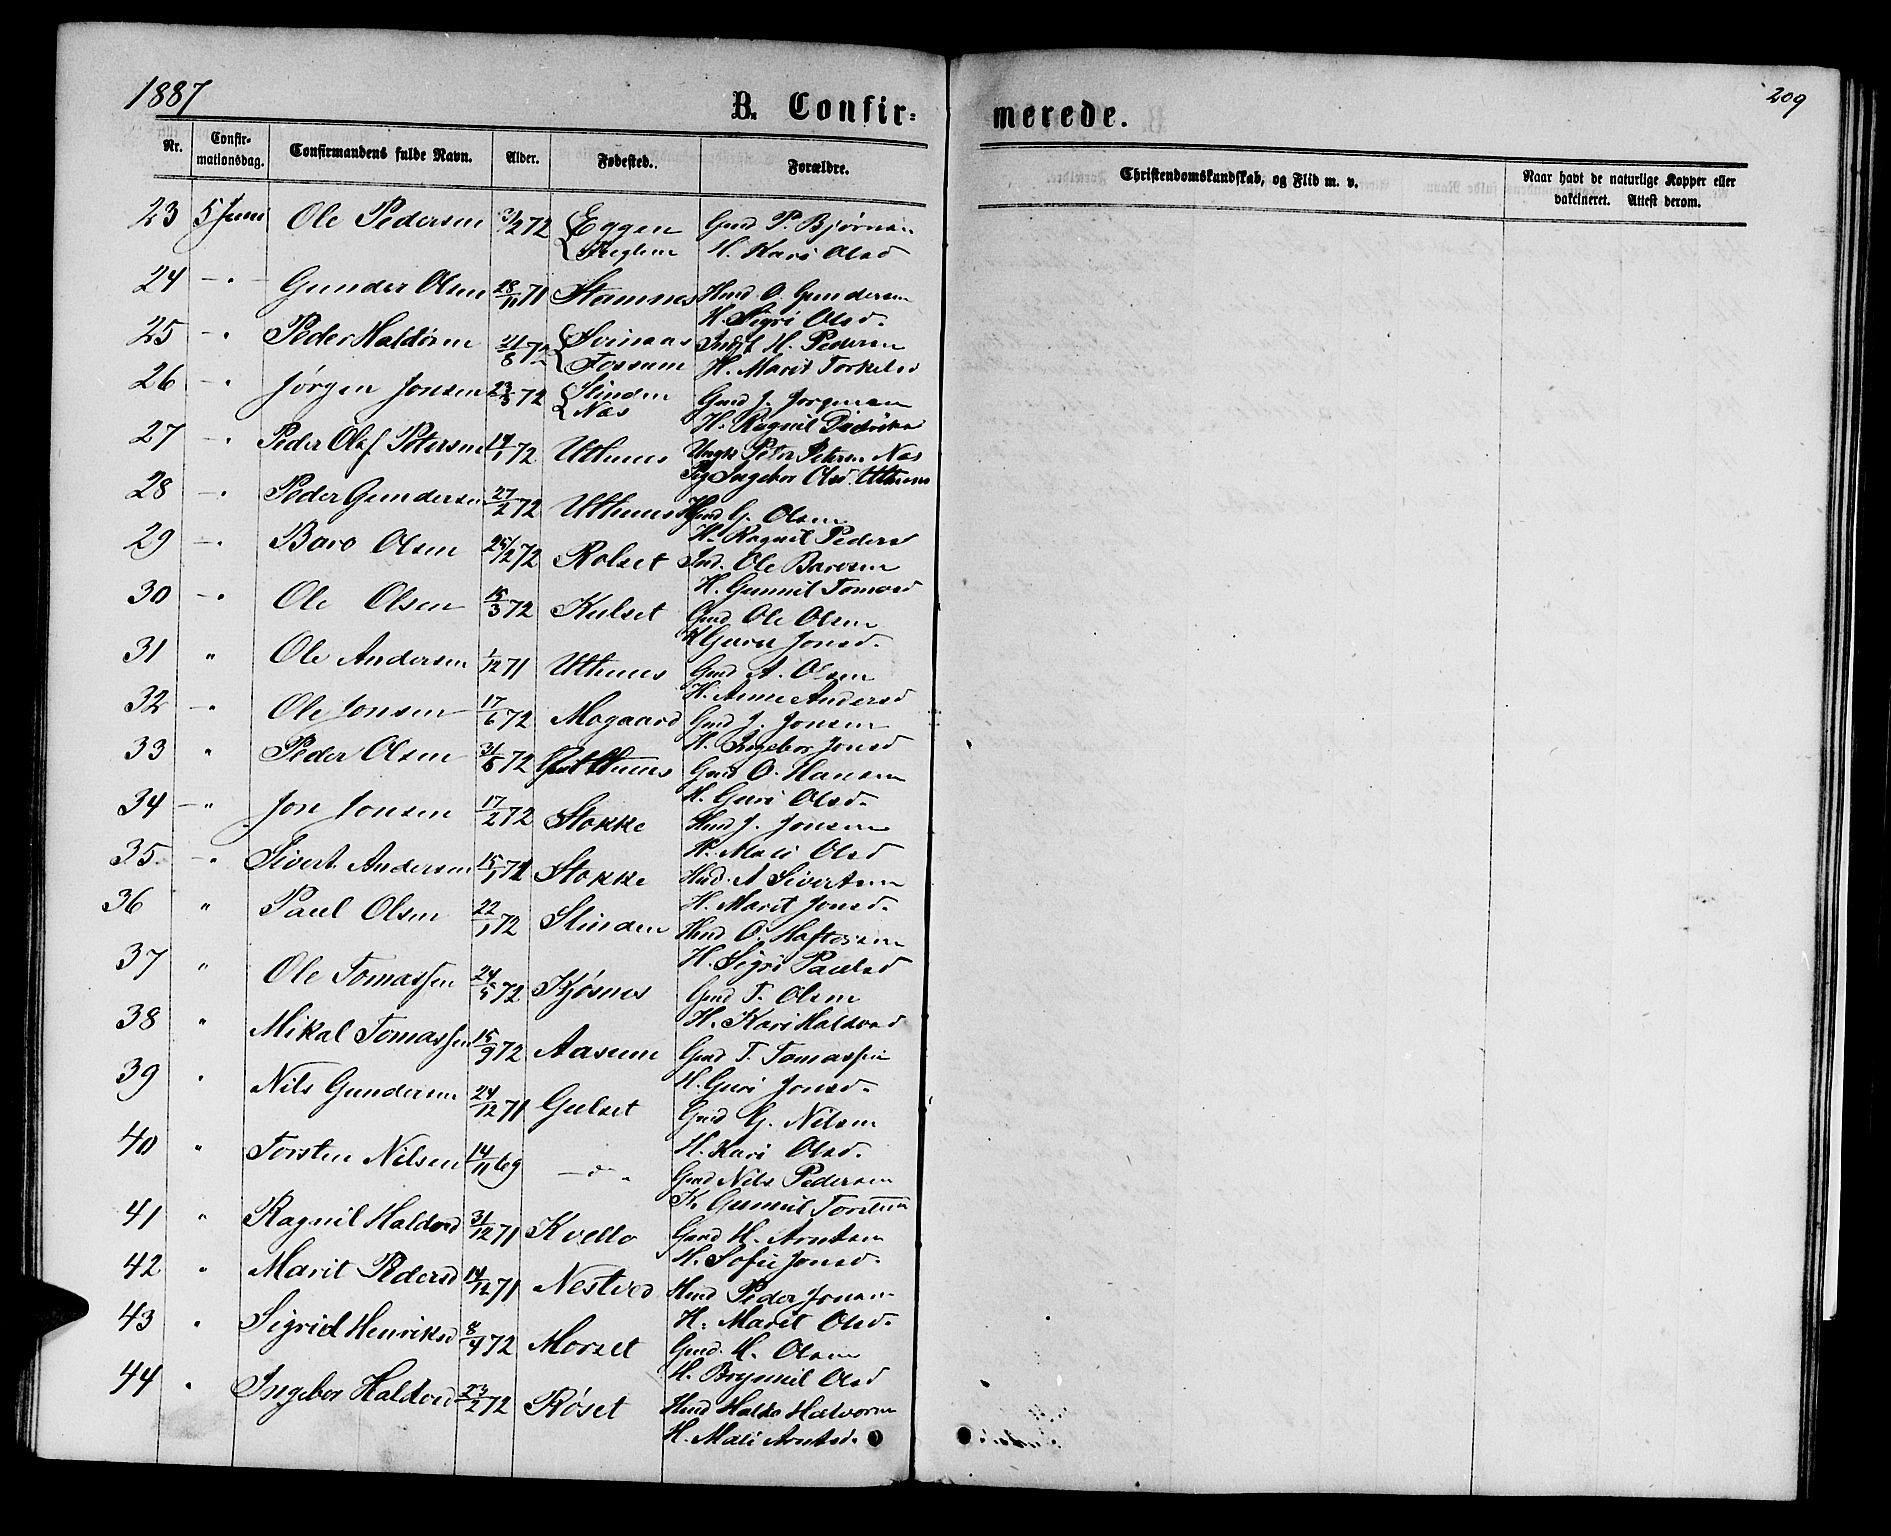 1887
B. Confirmerede.
209
Nr. Confirmationsdag. Confirmandens fulde Navn. Alder. Fødested. Forældre. Christendomskundskab, og Flid m. v. Naar havt de naturlige Kopper eller vakcineret. Attest derom.
23 5 Juni Ole Pedersen 3/2 72 Eggen Gmd P. Bjørnsen
H. Kari Olsd
24 — " — Gunder Olsen 18/11 71 Stamnes Hmd O. Gundersen
H. Sigri Olsd.
25 — " Peder Haldorsen 21/8 72 Svinaas Fossum H. Pedersen
H. Marit Torkelsd
26 — " Jørgen Jonsen 23/5 72 Slinden Næs Gmd J. Jørgensen
H. Ragnil
27 — " Peder Olaf Petersen 14/1 72 Uthus Ungk Peter Petersen Næs
Pig Ingebor Olsd. Uthus
28 — " Peder Gundersen 27/2 72 Uthus Gmd G. Olsen
H. Ragnil Pedersd
29 — " Baro Olsen 25/12 72 Rolset Ind. Ole Barosen
H. Gunnil Tomasd
30 — " Ole Olsen 15/3 72 Kulset Gmd Ole Olsen
H Guru Jonsd.
31 " Ole Andersen 1/12 71 Uthus Gmd A. Olsen
H. Anne Andersd
32 — " Ole Jonsen 17/6 72 Mogaard Gmd J. Jonsen
H. Ingebor Jonsd
33 " Peder Olsen 31/8 72 Uthus Gmd O. Hansen
H. Guri Olsd.
34 — " Jon Jonsen 17/2 72 Stokke Hmd J. Jonsen
H. Mali Olsd
35. — " Sivert Andersen 15/1 71 Stokke Hmd. A Sivertsen
H. Marit Jonsd.
36 " Paul Olsen 22/1 72 Slinden Hmd O. Haftorsen
H. Sigri Paulsd
37 " Ole Tomassen 24/5 72 Kjøsnes Gmd T. Olsen
H. Kari Haldorsd
38 " Mikal Tomassen 15/9 72 Aasum Gmd T. Tomassen
H. Guri Jonsd.
39 " Nils Gundersen 24/12 71 Gulset Gmd G. Nilsen
H. Kari Olsd.
40 " Torsten Nilsen 14/11 69 — " — Gmd Nils Pedersen
K. Gunnil Torstensd
41 " Ragnil Haldorsd 31/12 71 Kvello Gmd H. Arntsen
H. Sofie Jonsd.
42 " Marit Pedersd 14/12 71 Nestved Hmd Peder Jonsen
H. Marit Olsd.
43 " Sigrid Henriksd 8/4 72 Morset Gmd. H. Olsen
H. Brynnil Olsd
44 " Ingebor Haldorsd 23/2 72 Røset Hmd Haldo Halvorsen
H. Mali Arntsd.